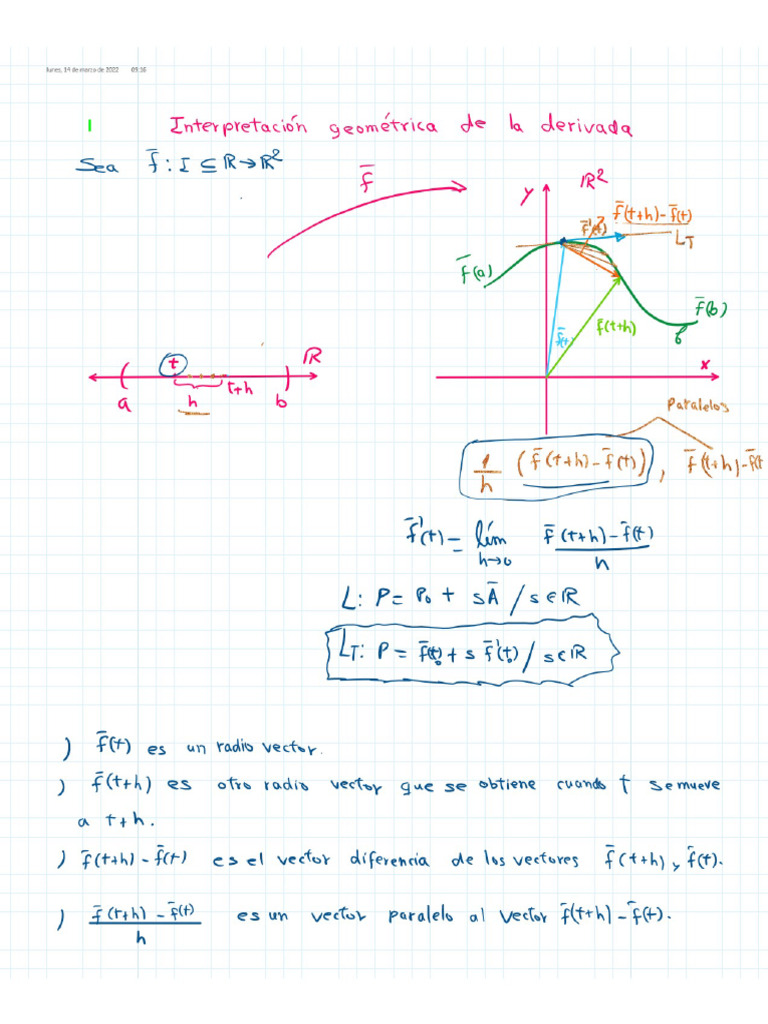 lunes, 14 de marzo de 2022 09:16
1 Interpretación geométrica de la derivada
Sea f̄ : I ⊆ ℝ → ℝ²
f̄
y
ℝ²
f̄(t+h) - f̄(t)
f̄'(t)
L_T
f̄(a)
f̄(b)
f̄(t)
f̄(t+h)
x
t
ℝ
a
h
t+h
b
Paralelos
1/h (f̄(t+h) - f̄(t)), f̄(t+h) - f̄(t
f̄'(t) = lím h→0 (f̄(t+h) - f̄(t))/h
L: P = P₀ + sĀ / s ∈ ℝ
L_T: P = f̄(t₀) + s f̄'(t₀) / s ∈ ℝ
) f̄(t) es un radio vector.
) f̄(t+h) es otro radio vector que se obtiene cuando t se mueve
a t+h.
) f̄(t+h) - f̄(t) es el vector diferencia de los vectores f̄(t+h) y f̄(t).
) (f̄(t+h) - f̄(t))/h es un vector paralelo al vector f̄(t+h) - f̄(t).